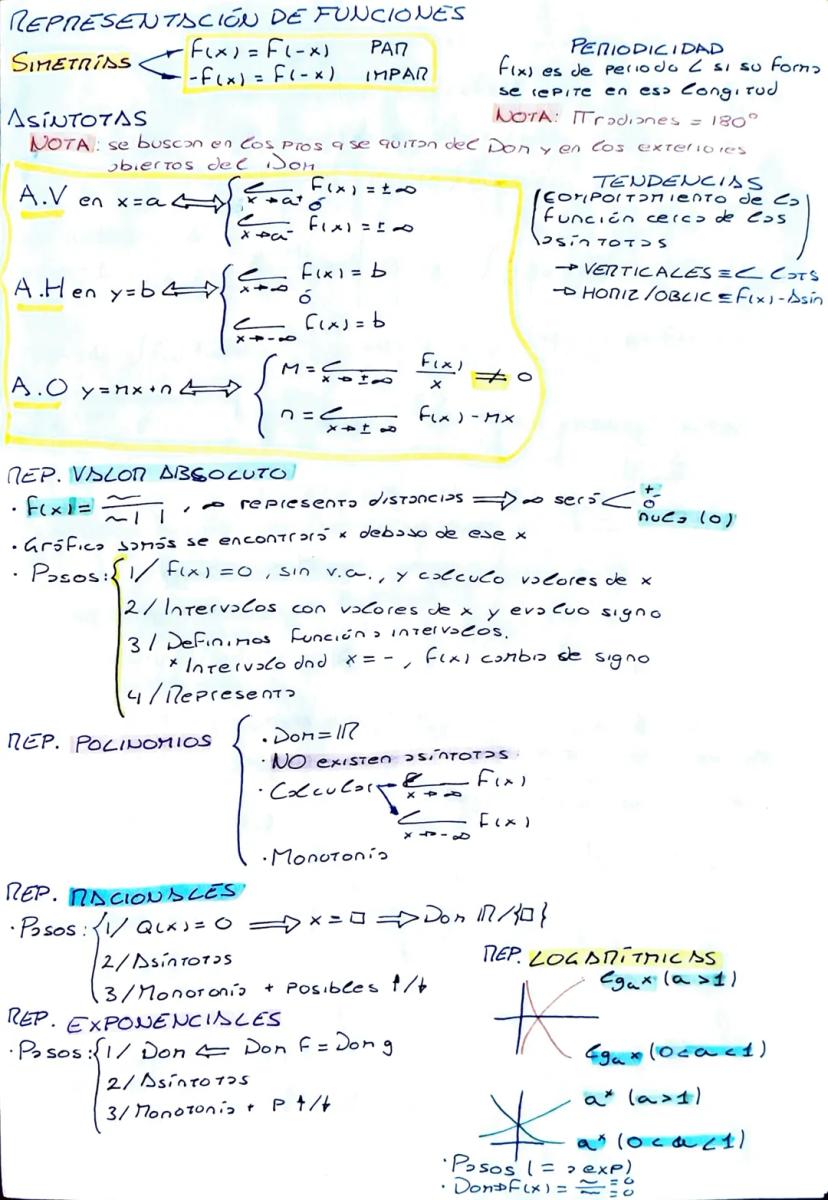 REPRESENTACIÓN DE FUNCIONES
SIMETRÍAS
F(x) = F(-x) PAR
-F(x) = F(-x) IMPAR
PERIODICIDAD
F(x) es de periodo L si su forma
se repite en esa longitud
NOTA: π radianes = 180°
ASÍNTOTAS
NOTA: se buscan en los ptos q se quitan del Dom y en los exteriores
abiertos del Dom
A.V en x=a ⟺ { L x→a⁺ F(x) = ±∞
ó
L x→a⁻ F(x) = ±∞
A.H en y=b ⟺ { L x→∞ F(x) = b
ó
L x→-∞ F(x) = b
A.O y=mx+n ⟺ { M = L x→±∞ F(x)/x ≠ 0
n = L x→±∞ F(x) - Mx
TENDENCIAS
(comportamiento de la
función cerca de las
asíntotas)
→ VERTICALES ≡ L Lats
→ HORIZ/OBLIC ≡ F(x) - Asín
REP. VALOR ABSOLUTO
· F(x) = ~/~| | , ∞ representa distancias ⟹ ∞ será < + ó nula (0)
· Gráfica jamás se encontrará x debajo de ese x
· Pasos: { 1/ F(x) = 0, sin v.a., y calculo valores de x
2/ Intervalos con valores de x y evaluo signo
3/ Definimos función a intervalos.
* Intervalo dnd x = -, F(x) cambia de signo
4/ Represento
REP. POLINOMIOS
· Dom = ℝ
· NO existen asíntotas
· Calcular L x→∞ F(x)
L x→-∞ F(x)
· Monotonía
REP. RACIONALES
· Pasos: { 1/ Q(x) = 0 ⟹ x = □ ⟹ Dom ℝ/{□}
2/ Asíntotas
3/ Monotonía + Posibles ↑/↓
REP. EXPONENCIALES
· Pasos: { 1/ Dom ⇐ Dom F = Dom g
2/ Asíntotas
3/ Monotonía + P ↑/↓
REP. LOGARÍTMICAS
Lgₐx (a>1)
Lgₐx (0<a<1)
aˣ (a>1)
aˣ (0<a<1)
· Pasos (= a exp)